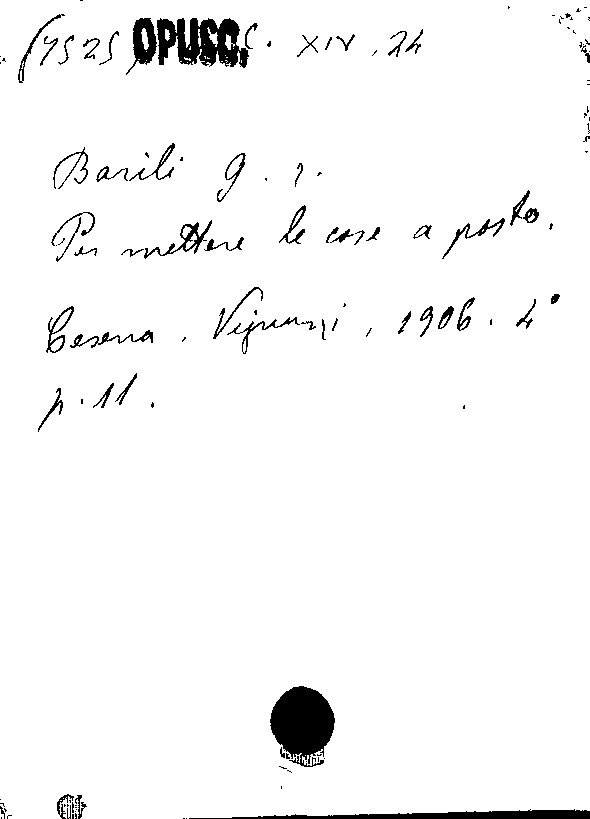 (7525 OPUSC. C. XIV. 24
Barili G. r.
Per mettere le cose a posto.
Cesena. Vignuzzi, 1906. 4°
p. 11.